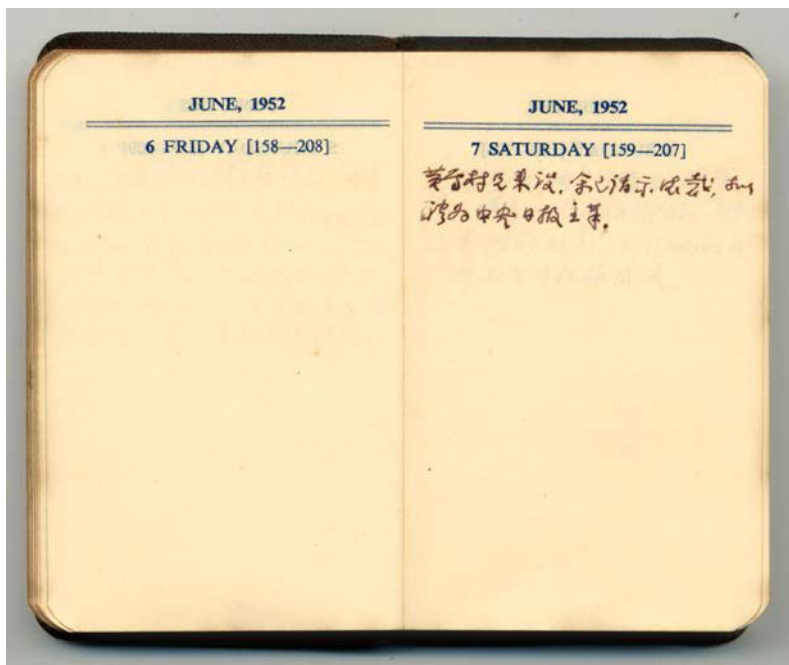 JUNE, 1952
6 FRIDAY [158—208]
JUNE, 1952
7 SATURDAY [159—207]
来谈,余已请示总裁,
聘为中央日报主笔。